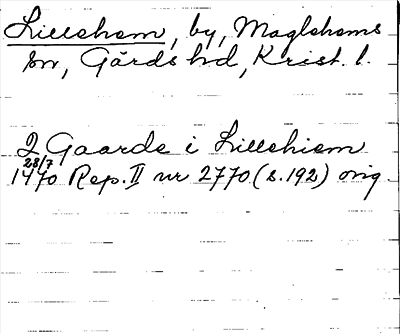 Lillehem, by, Maglehems
sn, Gärds hd, Krist. l.
2 Gaarde i Lillehiem
28/7
1470 Rep. II nr 2770 (s. 192) orig